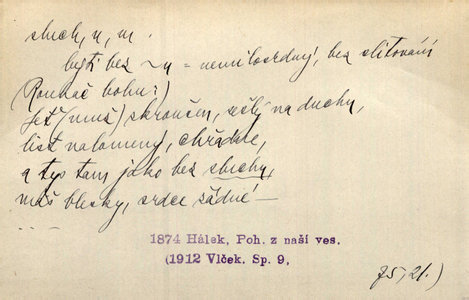 sluch, u, m.
býti bez ~u = nemilosrdný, bez slitování
(Rouhač bohu:)
Jeť (muž) skroušen, sešlý na duchu,
list nalomený, chřadne,
a tys tam jako bez sluchu,
máš blesky, srdce žádné —
....
1874 Hálek, Poh. z naší ves.
(1912 Vlček. Sp. 9.
75, 21.)